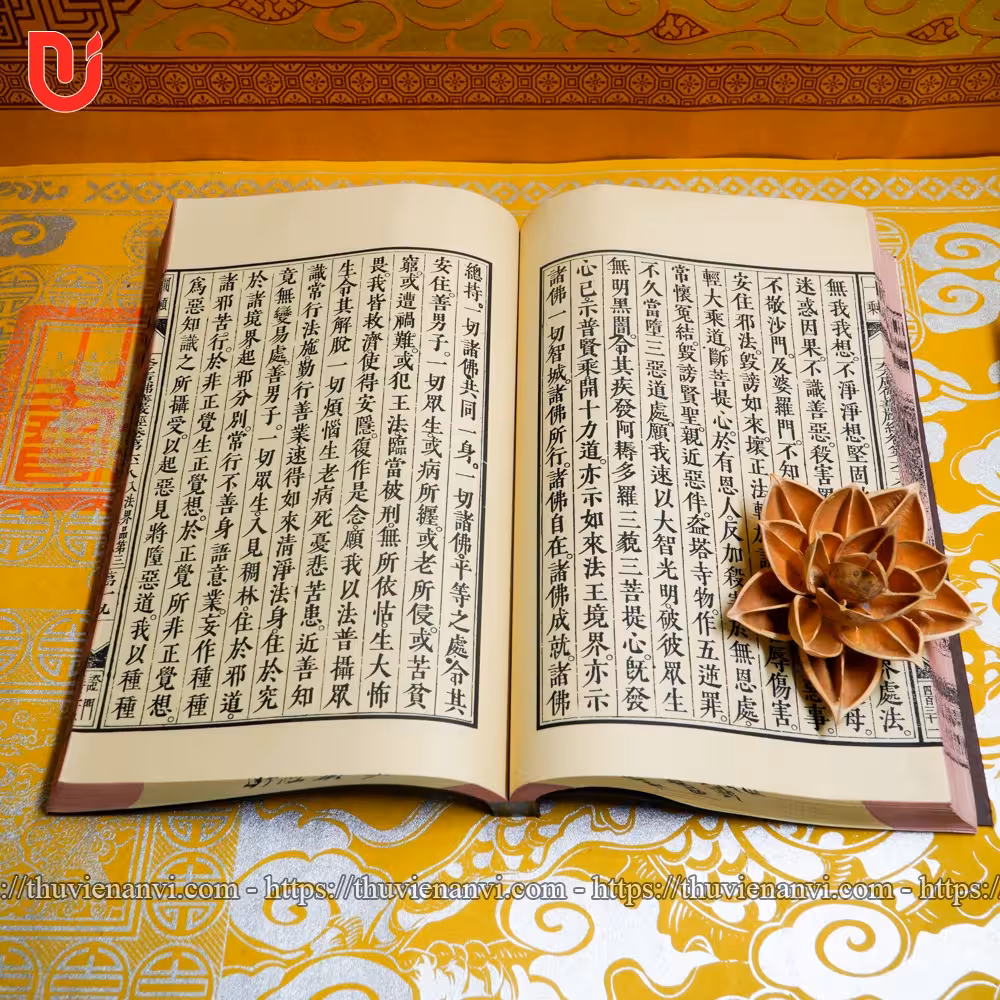 無我我想。不淨淨想。堅固
處法。
迷惑因果。不識善惡。殺害
母
不敬沙門。及婆羅門。不知
事。
安住邪法。毀謗如來。壞正法
辱傷害。
輕大乘道。斷菩提心。於有恩人。反加殺害。於無恩處。
常懷冤結。毀謗賢聖。親近惡伴。盜塔寺物。作五逆罪。
不久當墮三惡道處。願我速以大智光明。破彼眾生
無明黑闇。令其疾發阿耨多羅三藐三菩提心。既發
心已。示普賢乘。開十力道。亦示如來法王境界。亦示
諸佛一切智城。諸佛所行。諸佛自在。諸佛成就。諸佛
總持。一切諸佛共同一身。一切諸佛。平等之處。令其
安住。善男子。一切眾生。或病所纏。或老所侵。或苦貧
窮。或遭禍難。或犯王法。臨當被刑。無所依怙。生大怖
畏。我皆救濟。使得安隱。復作是念。願我以法普攝眾
生。令其解脫一切煩惱。生老病死憂悲苦患。近善知
識。常行法施。勤行善業。速得如來清淨法身。住於究
竟無變易處。善男子。一切眾生。入見稠林。住於邪道。
於諸境界起邪分別。常行不善身語意業。妄作種種
諸邪苦行。於非正覺生正覺想。於正覺所非正覺想。
爲惡知識之所攝受。以起惡見。將墮惡道。我以種種
https://thuvienanvi.com - https://thuvienanvi.com - https://thuvienanvi.com